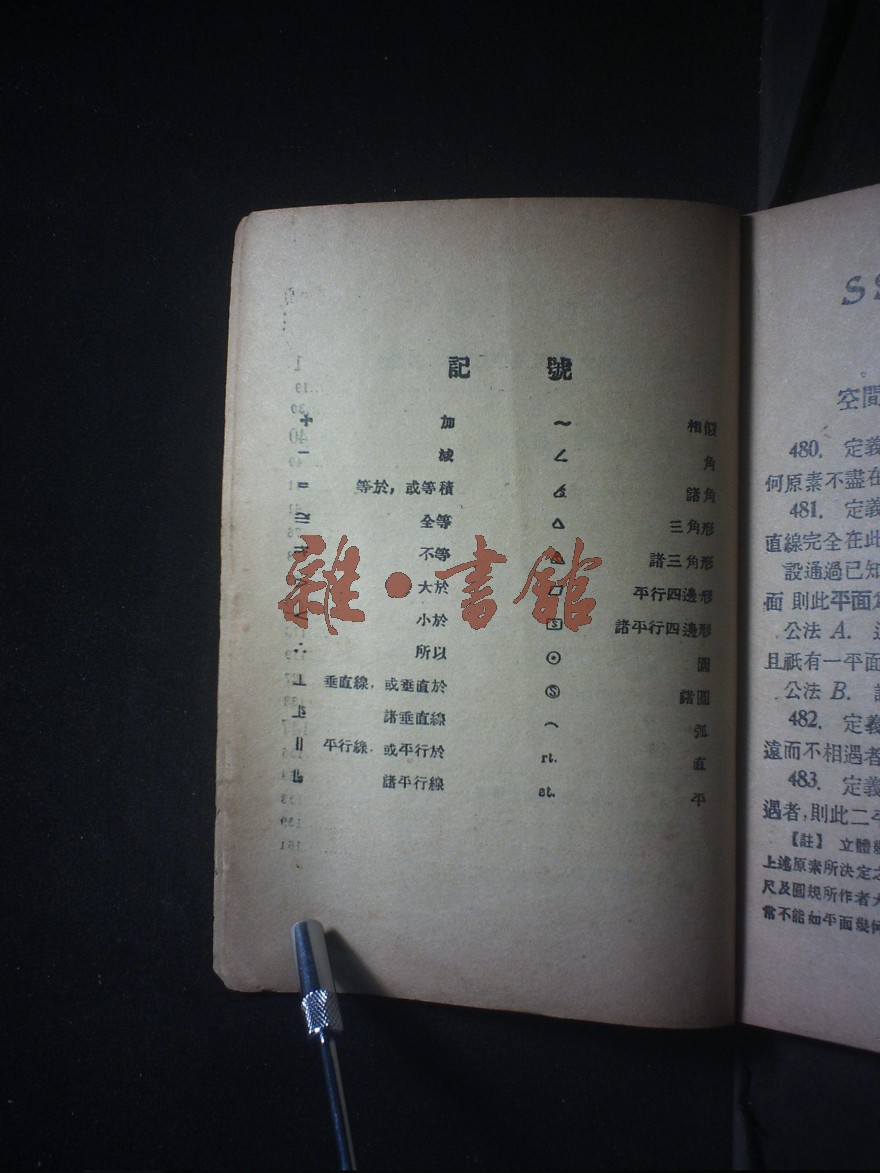 記 號
+ 加 ～ 相似
− 減 ∠ 角
= 等於，或等積 諸角
全等 △ 三角形
不等 諸三角形
大於 ▱ 平行四邊形
小於 諸平行四邊形
∴ 所以 ⊙ 圓
⊥ 垂直線，或垂直於 Ⓢ 諸圓
諸垂直線 ⌒ 弧
∥ 平行線，或平行於 rt. 直
諸平行線 st. 平
雜·書館
SS
空間
480. 定義
何原素不盡在
481. 定義
直線完全在此
設通過已知
面 則此平面
公法 A.
且祇有一平面
公法 B.
482. 定義
遠而不相遇者
483. 定義
遇者，則此二平
【註】 立體
上述原素所決定之
尺及圓規所作者
常不能如平面幾何